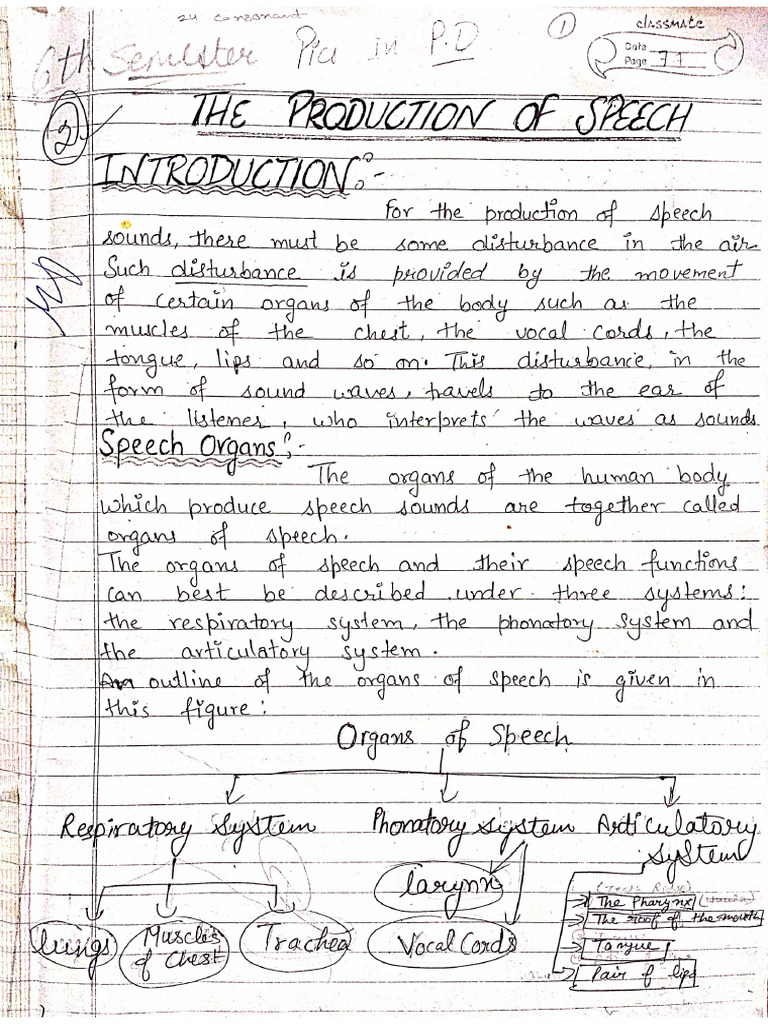 24 consonant
1
classmate
Date
Page 71
6th Semister Pic in P.D
2
THE PRODUCTION OF SPEECH
INTRODUCTION:-
For the production of speech
sounds, there must be some disturbance in the air.
Such disturbance is provided by the movement
of certain organs of the body such as the
muscles of the chest, the vocal cords, the
tongue, lips and so on. This disturbance, in the
form of sound waves, travels to the ear of
the listener, who interprets the waves as sounds
Speech Organs:-
The organs of the human body
which produce speech sounds are together called
organs of speech.
The organs of speech and their speech functions
can best be described under three systems:
the respiratory system, the phonatory system and
the articulatory system.
An outline of the organs of speech is given in
this figure:
Organs of Speech
Respiratory System Phonatory system Articulatory
System
larynx
The Pharynx
The roof of the mouth
lungs Muscles of Chest Trachea Vocal Cords
Tongue
Pair of lips